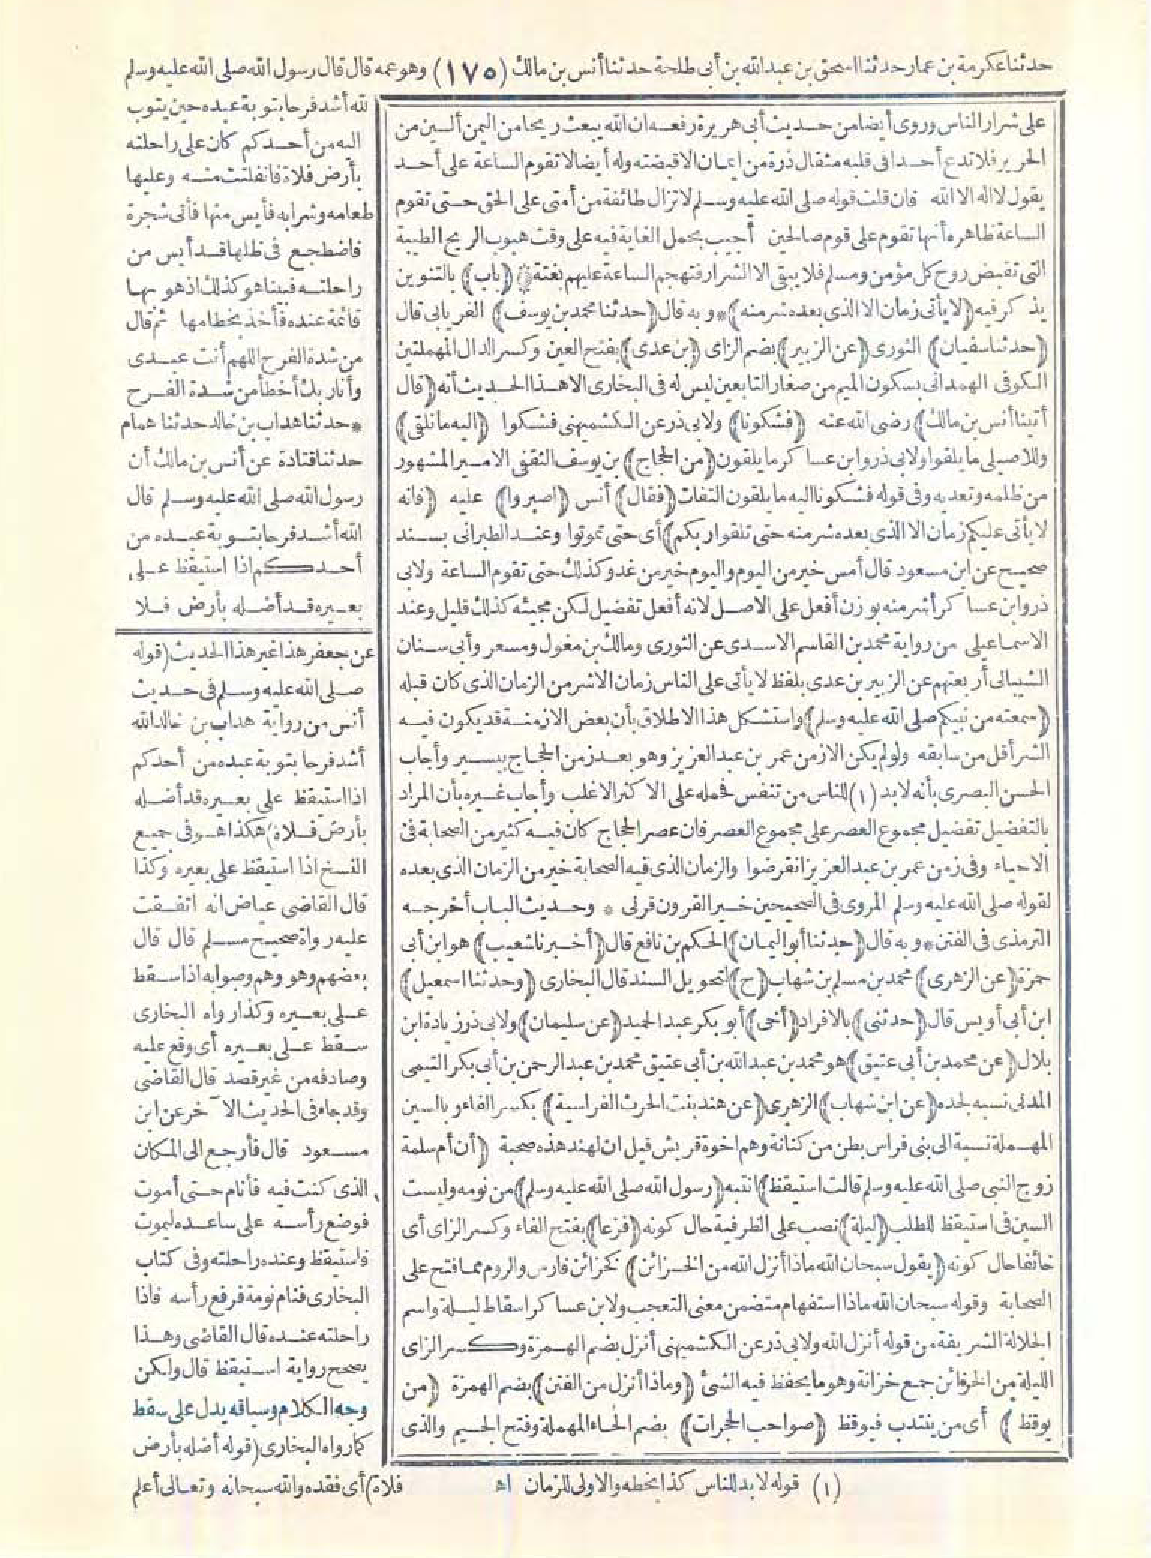 حدثنا عكرمة بن عمار حدثنا اسحق بن عبدالله بن أبى طلحة حدثنا أنس بن مالك (١٧٥) وهو عمه قال قال رسول الله صلى الله عليه وسلم
على شرار الناس وروى أيضا من حديث أبى هريرة رفعه ان الله يبعث ريحا من اليمن ألين من
الحرير فلا تدع أحدا فى قلبه مثقال ذرة من ايمان الا قبضته وله أيضا لا تقوم الساعة على أحد
يقول لا اله الا الله فان قلت قوله صلى الله عليه وسلم لا تزال طائفة من أمتى على الحق حتى تقوم
الساعة ظاهره أنها تقوم على قوم صالحين أجيب بحمل الغاية فيه على وقت هبوب الريح الطيبة
التى تقبض روح كل مؤمن ومسلم فلا يبقى الا الشرار فتهجم الساعة عليهم بغتة ۞ ﴿(باب)﴾ بالتنوين
يذكر فيه (لا يأتى زمان الا الذى بعده شر منه) * وبه قال (حدثنا محمد بن يوسف) الفريابى قال
(حدثنا سفيان) الثورى (عن الزبير) بضم الزاى (بن عدى) بفتح العين وكسر الدال المهملتين
الكوفى الهمدانى بسكون الميم من صغار التابعين ليس له فى البخارى الا هذا الحديث أنه (قال
أتينا أنس بن مالك) رضى الله عنه (فشكونا) ولابى ذر عن الكشميهنى فشكوا (اليه ما نلقى)
وللاصيلى ما يلقوا ولابى ذر وابن عساكر ما يلقون (من الحجاج) بن يوسف الثقفى الامير المشهور
من ظلمه وتعديه وفى قوله فشكونا اليه ما يلقون التفات (فقال) أنس (اصبروا) عليه (فانه
لا يأتى عليكم زمان الا الذى بعده شر منه حتى تلقوا ربكم) أى حتى تموتوا وعند الطبرانى بسند
صحيح عن ابن مسعود قال أمس خير من اليوم واليوم خير من غد وكذلك حتى تقوم الساعة ولابى
ذر وابن عساكر أشر منه بوزن أفعل على الاصل لانه أفعل تفضيل لكن مجيئه كذلك قليل وعند
الاسماعيلى من رواية محمد بن القاسم الاسدى عن الثورى ومالك بن مغول ومسعر وأبى سنان
الشيبانى أربعتهم عن الزبير بن عدى بلفظ لا يأتى على الناس زمان الا شر من الزمان الذى كان قبله
(سمعته من نبيكم صلى الله عليه وسلم) واستشكل هذا الاطلاق بأن بعض الازمنة قد يكون فيه
الشر أقل من سابقه ولو لم يكن الا زمن عمر بن عبد العزيز وهو بعد زمن الحجاج بيسير وأجاب
الحسن البصرى بأنه لا بد (١) للناس من تنفس فحمله على الاكثر الاغلب وأجاب غيره بأن المراد
بالتفضيل تفضيل مجموع العصر على مجموع العصر فان عصر الحجاج كان فيه كثير من الصحابة فى
الاحياء وفى زمن عمر بن عبد العزيز انقرضوا والزمان الذى فيه الصحابة خير من الزمان الذى بعده
لقوله صلى الله عليه وسلم المروى فى الصحيحين خير القرون قرنى * وحديث الباب أخرجه
الترمذى فى الفتن * وبه قال (حدثنا أبو اليمان) الحكم بن نافع قال (أخبرنا شعيب) هو ابن أبى
حمزة (عن الزهرى) محمد بن مسلم بن شهاب (ح) لتحويل السند قال البخارى (وحدثنا اسمعيل)
ابن أبى أويس قال (حدثنى) بالافراد (أخى) أبو بكر عبد الحميد (عن سليمان) ولابى ذر زيادة ابن
بلال (عن محمد بن أبى عتيق) هو محمد بن عبد الله بن أبى عتيق محمد بن عبد الرحمن بن أبى بكر التيمى
المدنى نسبه لجده (عن ابن شهاب) الزهرى (عن هند بنت الحرث الفراسية) بكسر الفاء وبالسين
المهملة نسبة الى بنى فراس بطن من كنانة وهم اخوة قريش قيل ان لهند هذه صحبة (أن أم سلمة
زوج النبى صلى الله عليه وسلم قالت استيقظ) انتبه (رسول الله صلى الله عليه وسلم) من نومه وليست
السين فى استيقظ للطلب (ليلة) نصب على الظرفية حال كونه (فزعا) بفتح الفاء وكسر الزاى أى
خائفا حال كونه (يقول سبحان الله ماذا أنزل الله من الخزائن) كخزائن فارس والروم مما فتح على
الصحابة وقوله سبحان الله ماذا استفهام متضمن معنى التعجب ولابن عساكر اسقاط ليلة واسم
الجلالة الشريفة من قوله أنزل الله ولابى ذر عن الكشميهنى أنزل بضم الهمزة وكسر الزاى
الليلة من الخزائن جمع خزانة وهو ما يحفظ فيه الشئ (وماذا أنزل من الفتن) بضم الهمزة (من
يوقظ) أى من ينتدب فيوقظ (صواحب الحجرات) بضم الحاء المهملة وفتح الجيم والذى
(١) قوله لا بد للناس كذا بخطه والاولى للزمان اه
لله أشد فرحا بتوبة عبده حين يتوب
اليه من أحدكم كان على راحلته
بأرض فلاة فانفلتت منه وعليها
طعامه وشرابه فأيس منها فأتى شجرة
فاضطجع فى ظلها قد أيس من
راحلته فبينا هو كذلك اذ هو بها
قائمة عنده فأخذ بخطامها ثم قال
من شدة الفرح اللهم أنت عبدى
وأنا ربك أخطأ من شدة الفرح
* حدثنا هداب بن خالد حدثنا همام
حدثنا قتادة عن أنس بن مالك أن
رسول الله صلى الله عليه وسلم قال
الله أشد فرحا بتوبة عبده من
أحدكم اذا استيقظ على
بعيره قد أضله بأرض فلا
عن جعفر هذا غير هذا الحديث (قوله
صلى الله عليه وسلم فى حديث
أنس من رواية هداب بن خالد الله
أشد فرحا بتوبة عبده من أحدكم
اذا استيقظ على بعيره قد أضله
بأرض فلاة) هكذا هو فى جميع
النسخ اذا استيقظ على بعيره وكذا
قال القاضى عياض انه اتفقت
عليه رواة صحيح مسلم قال قال
بعضهم وهو وهم وصوابه اذا سقط
على بعيره وكذا رواه البخارى
سقط على بعيره أى وقع عليه
وصادفه من غير قصد قال القاضى
وقد جاء فى الحديث الآخر عن ابن
مسعود قال فأرجع الى المكان
الذى كنت فيه فأنام حتى أموت
فوضع رأسه على ساعده ليموت
فاستيقظ وعنده راحلته وفى كتاب
البخارى فنام نومة فرفع رأسه فاذا
راحلته عنده قال القاضى وهذا
يصحح رواية استيقظ قال ولكن
وجه الكلام وسياقه يدل على سقط
كما رواه البخارى (قوله أضله بأرض
فلاة) أى فقده والله سبحانه وتعالى أعلم